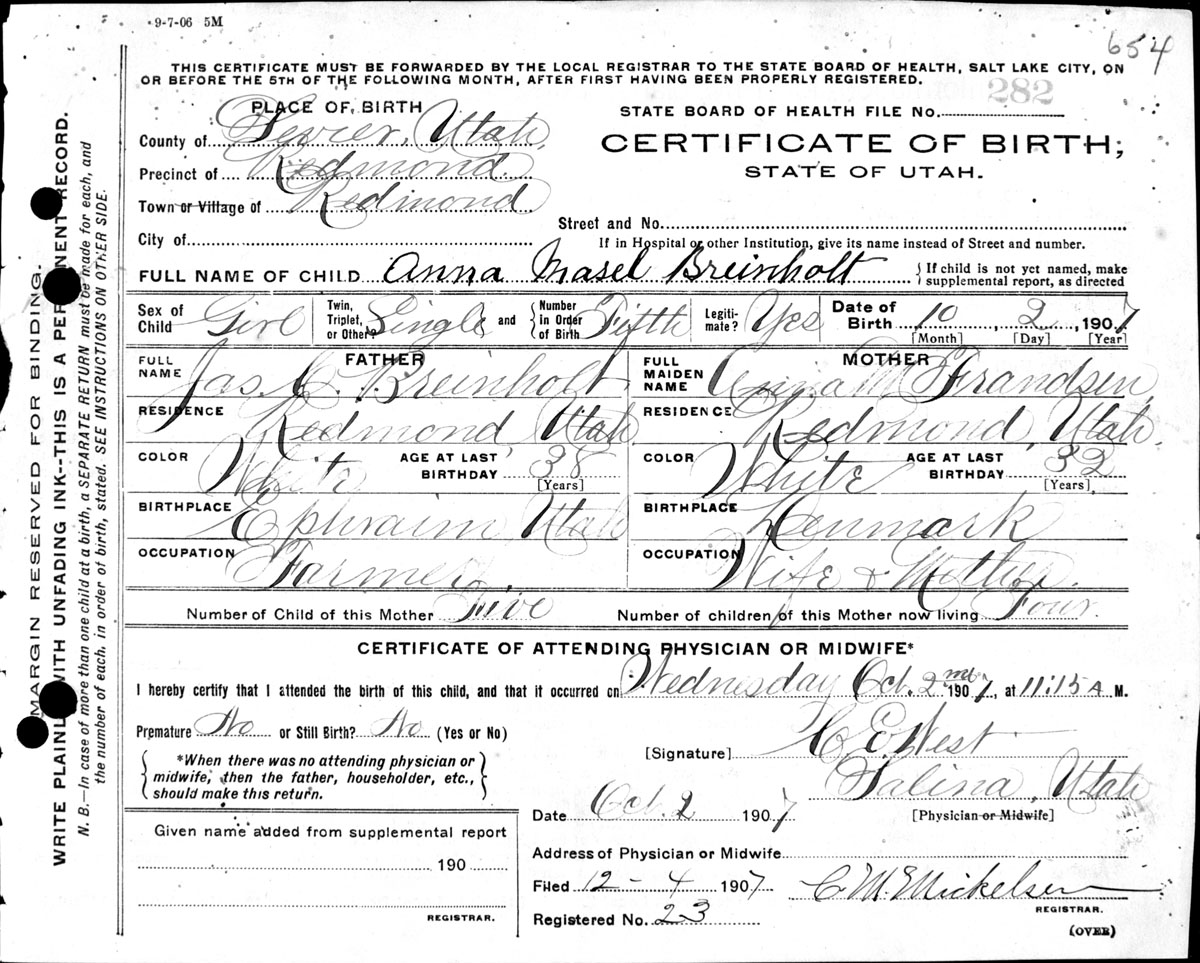 9-7-06 5M
654
THIS CERTIFICATE MUST BE FORWARDED BY THE LOCAL REGISTRAR TO THE STATE BOARD OF HEALTH, SALT LAKE CITY, ON
OR BEFORE THE 5TH OF THE FOLLOWING MONTH, AFTER FIRST HAVING BEEN PROPERLY REGISTERED.
282
PLACE OF BIRTH
STATE BOARD OF HEALTH FILE No.
County of Sevier, Utah,
CERTIFICATE OF BIRTH;
STATE OF UTAH.
Precinct of Redmond
Town or Village of Redmond
Street and No.
City of
If in Hospital or other Institution, give its name instead of Street and number.
FULL NAME OF CHILD Anna Masel Breinholt {If child is not yet named, make supplemental report, as directed
Sex of Child Girl Twin, Triplet, or Other? Single and {Number in Order of Birth Fifth Legiti-mate? Yes Date of Birth 10 2, 1907
[Month] [Day] [Year]
FATHER MOTHER
FULL NAME Jas. C. Breinholt FULL MAIDEN NAME Anna M Frandsen,
RESIDENCE Redmond Utah. RESIDENCE Redmond, Utah.
COLOR White AGE AT LAST BIRTHDAY 38 [Years] COLOR White AGE AT LAST BIRTHDAY 32 [Years]
BIRTHPLACE Ephraim Utah BIRTHPLACE Denmark
OCCUPATION Farmer. OCCUPATION Wife & Mother.
Number of Child of this Mother Five Number of children of this Mother now living Four.
CERTIFICATE OF ATTENDING PHYSICIAN OR MIDWIFE*
I hereby certify that I attended the birth of this child, and that it occurred on Wednesday Oct. 2nd 1907, at 11:15 A M.
Premature No or Still Birth? No (Yes or No)
[Signature] C E West
{*When there was no attending physician or
midwife, then the father, householder, etc.,
should make this return.}
Salina, Utah
Date Oct. 2 1907 [Physician or Midwife]
Given name added from supplemental report
190
REGISTRAR.
Address of Physician or Midwife
Filed 12-4 1907 C. M. Mickelsen
REGISTRAR.
Registered No. 23
(OVER)
MARGIN RESERVED FOR BINDING.
WRITE PLAINLY WITH UNFADING INK--THIS IS A PERMANENT RECORD.
N. B.—In case of more than one child at a birth, a SEPARATE RETURN must be made for each, and
the number of each, in order of birth, stated. SEE INSTRUCTIONS ON OTHER SIDE.